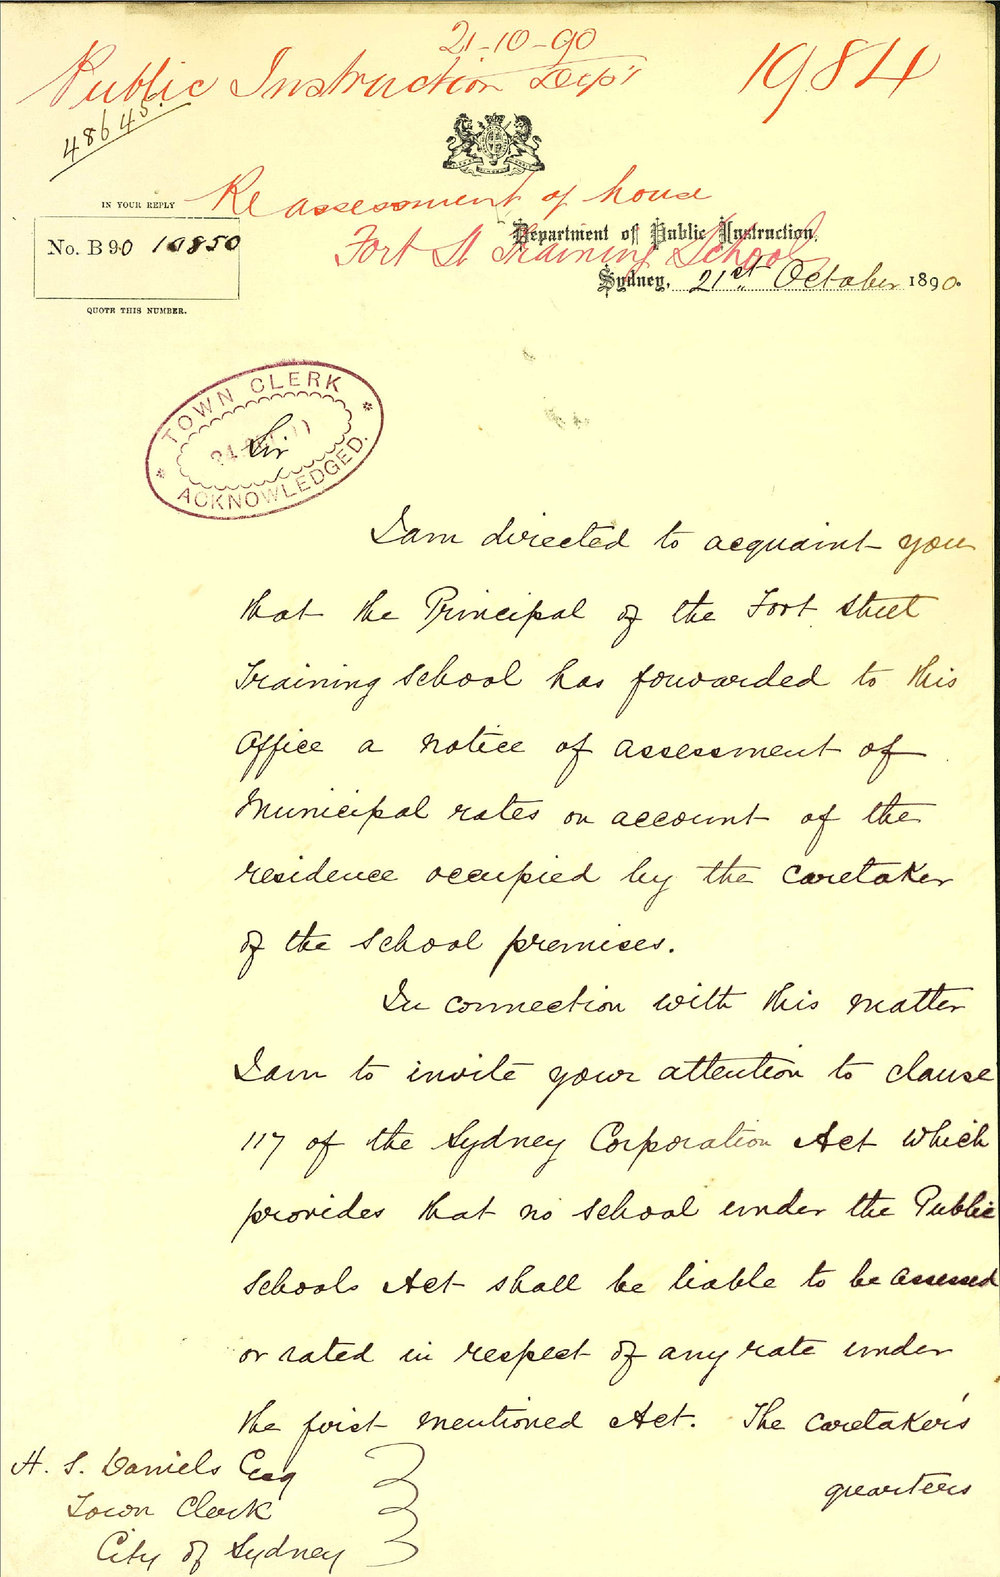 21-10-90
Public Instruction Dep't
1984
48645.
Re assessment of house
Fort St Training School
IN YOUR REPLY
No. B 90 10850
QUOTE THIS NUMBER.
Department of Public Instruction,
Sydney, 21st October 1890.
TOWN CLERK
ACKNOWLEDGED.
Sir
I am directed to acquaint you
that the Principal of the Fort Street
Training School has forwarded to this
Office a notice of assessment of
Municipal rates on account of the
residence occupied by the caretaker
of the School premises.
In connection with this matter
I am to invite your attention to clause
117 of the Sydney Corporation Act which
provides that no school under the Public
Schools Act shall be liable to be assessed
or rated in respect of any rate under
the first mentioned Act. The caretaker's
quarters
H. S. Daniels Esq
Town Clerk
City of Sydney